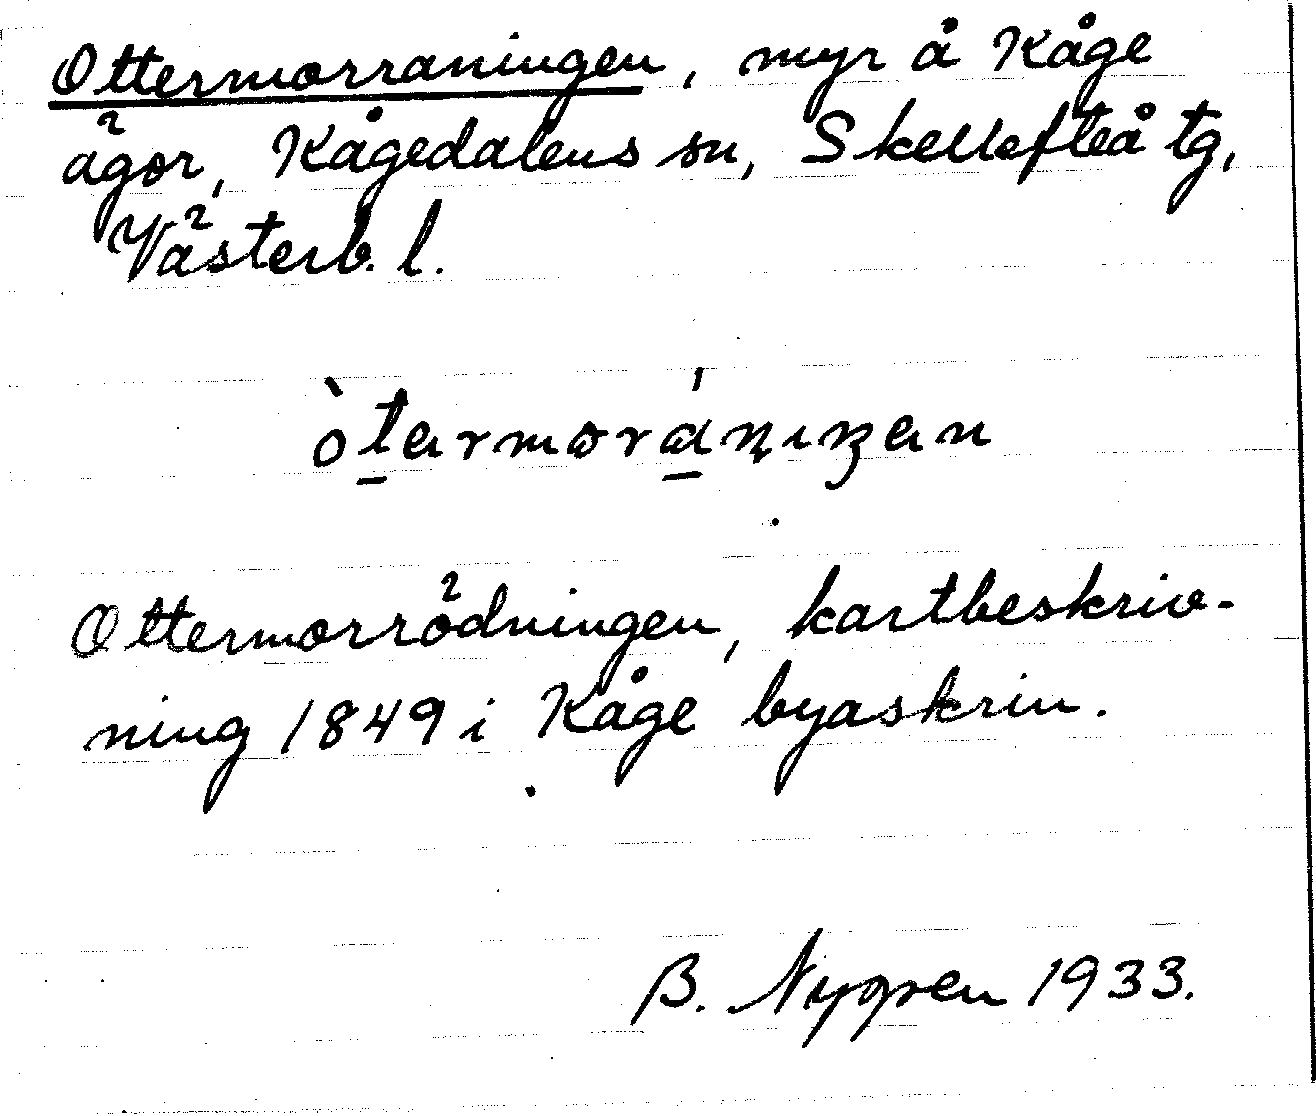 Ottermorraningen, myr å Kåge
ägor, Kågedalens sn, Skellefteå tg,
Västerb. l.
òt̲ermorá̲nıŋen
Ottermorrödningen, kartbeskriv-
ning 1849 i Kåge byaskrin.
B. Nygren 1933.